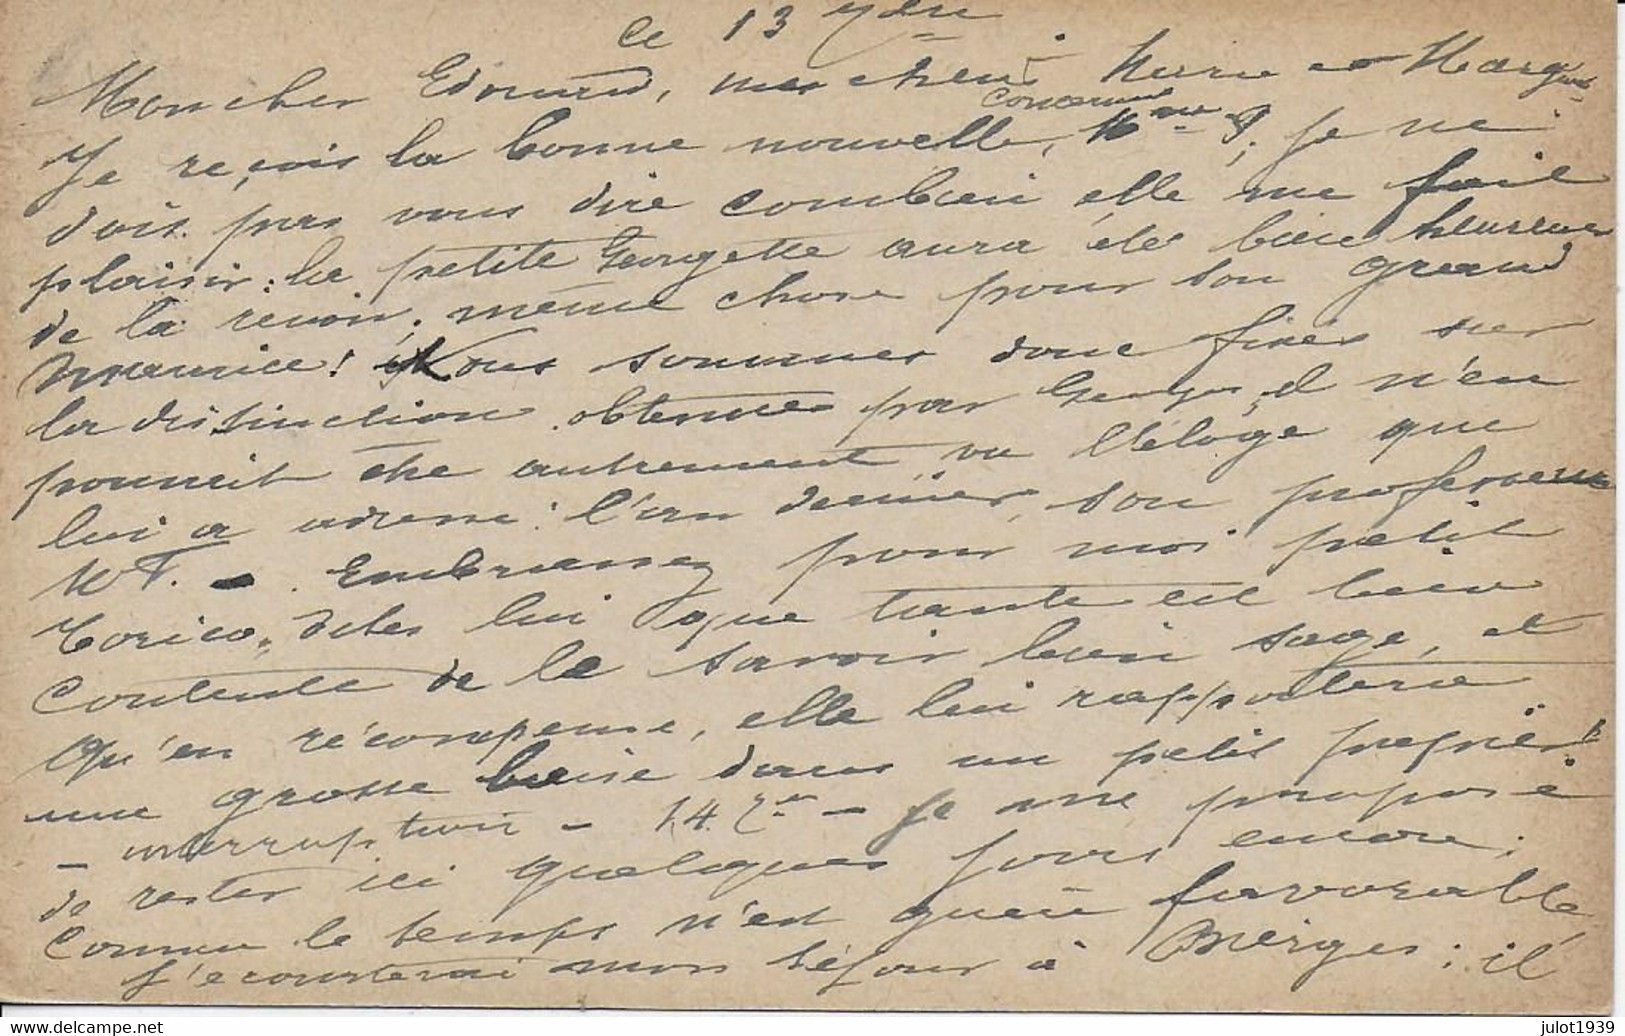 Ce 13 7bre
Mon cher Edouard, mes chères Marie et Marg
concernant
Je reçois la bonne nouvelle, Mme G, je ne
dois pas vous dire combien elle me fait
plaisir : la petite Georgette aura été bien heureuse
de la revoir, même chose pour son grand
Maurice! Nous sommes donc fixés sur
la distinction obtenue par Georges, il n'en
pouvait être autrement, vu l'éloge que
lui a adressé l'an dernier, son professeur
Mr F. - Embrassez pour moi petit
dites lui que tante est bien
contente de le savoir bien sage, et
qu'en récompense, elle lui rapportera
une grosse baise dans un petit papier
- interruption - 14 7re - Je me propose
de rester ici quelques jours encore ;
comme le temps n'est guère favorable
j'écourterai mon séjour à Bierges : il
delcampe.net
julot1939